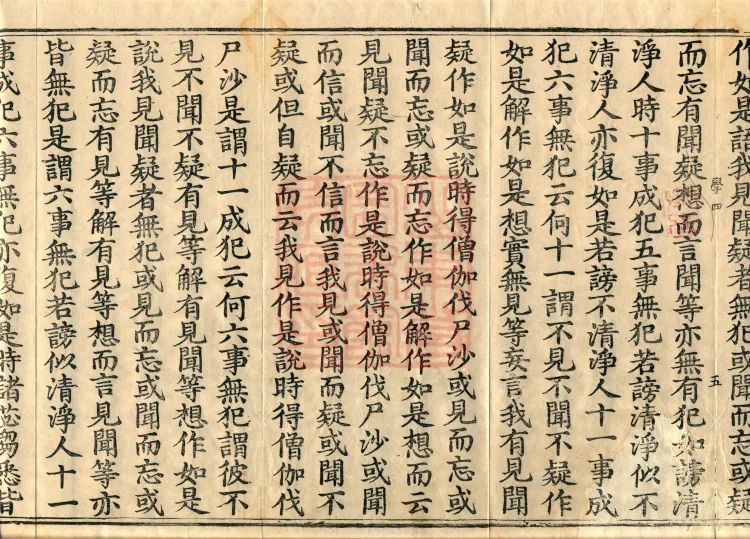 作如是語我見聞疑者無犯或聞而忘或疑
而忘有聞疑想而言聞等亦無有犯如謗清
學四
五
淨人時十事成犯五事無犯若謗清淨似不
清淨人亦復如是若謗不清淨人十一事成
犯六事無犯云何十一謂不見不聞不疑作
如是解作如是想實無見等妄言我有見聞
疑作如是說時得僧伽伐尸沙或見而忘或
聞而忘或疑而忘作如是解作如是想而云
見聞疑不忘作是說時得僧伽伐尸沙或聞
而信或聞不信而言我見或聞而疑或聞不
疑或但自疑而云我見作是說時得僧伽伐
尸沙是謂十一成犯云何六事無犯謂彼不
見不聞不疑有見等解有見聞等想作如是
說我見聞疑者無犯或見而忘或聞而忘或
疑而忘有見等解有見等想而言見聞等亦
皆無犯是謂六事無犯若謗似清淨人十一
事成犯六事無犯亦復如是時諸苾芻悉皆